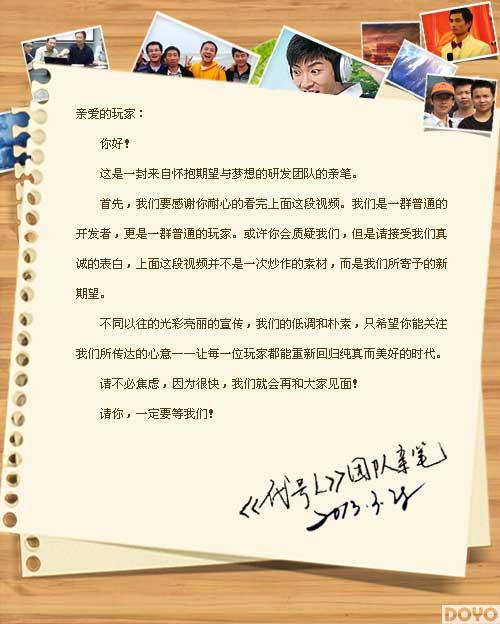 亲爱的玩家：
你好！
这是一封来自怀抱期望与梦想的研发团队的亲笔。
首先，我们要感谢你耐心的看完上面这段视频。我们是一群普通的
开发者，更是一群普通的玩家。或许你会质疑我们，但是请接受我们真
诚的表白，上面这段视频并不是一次炒作的素材，而是我们所寄予的新
期望。
不同以往的光彩亮丽的宣传，我们的低调和朴素，只希望你能关注
我们所传达的心意——让每一位玩家都能重新回归纯真而美好的时代。
请不必焦虑，因为很快，我们就会再和大家见面！
请你，一定要等我们！
《代号L》团队亲笔
2013.3.28
DOYO